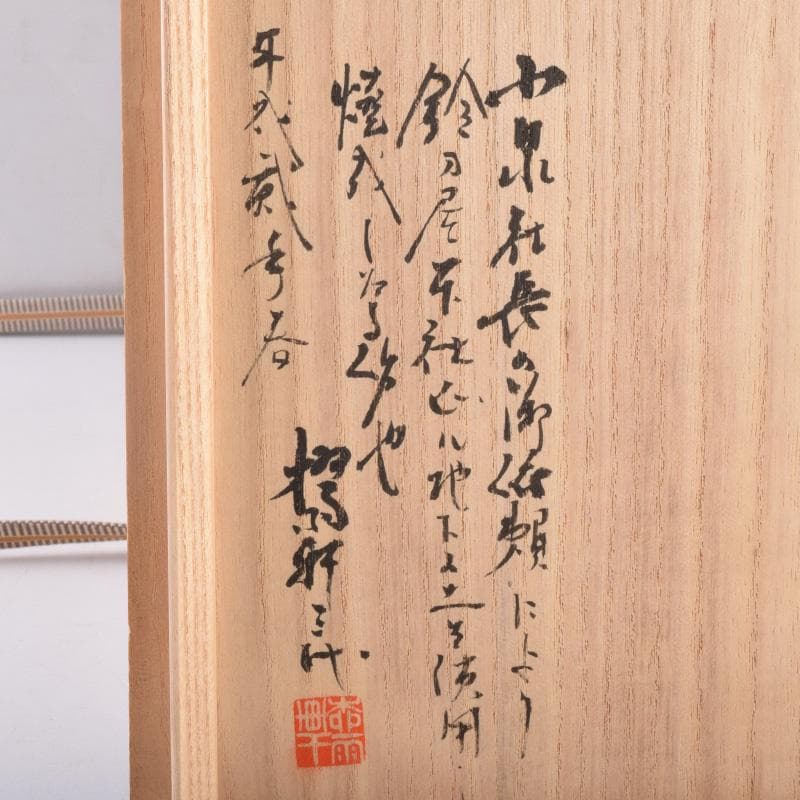 小泉社長の御依頼により
鈴乃屋本社ビル地下之土を使用
焼成しなる作也
平成貳年春
軒三代